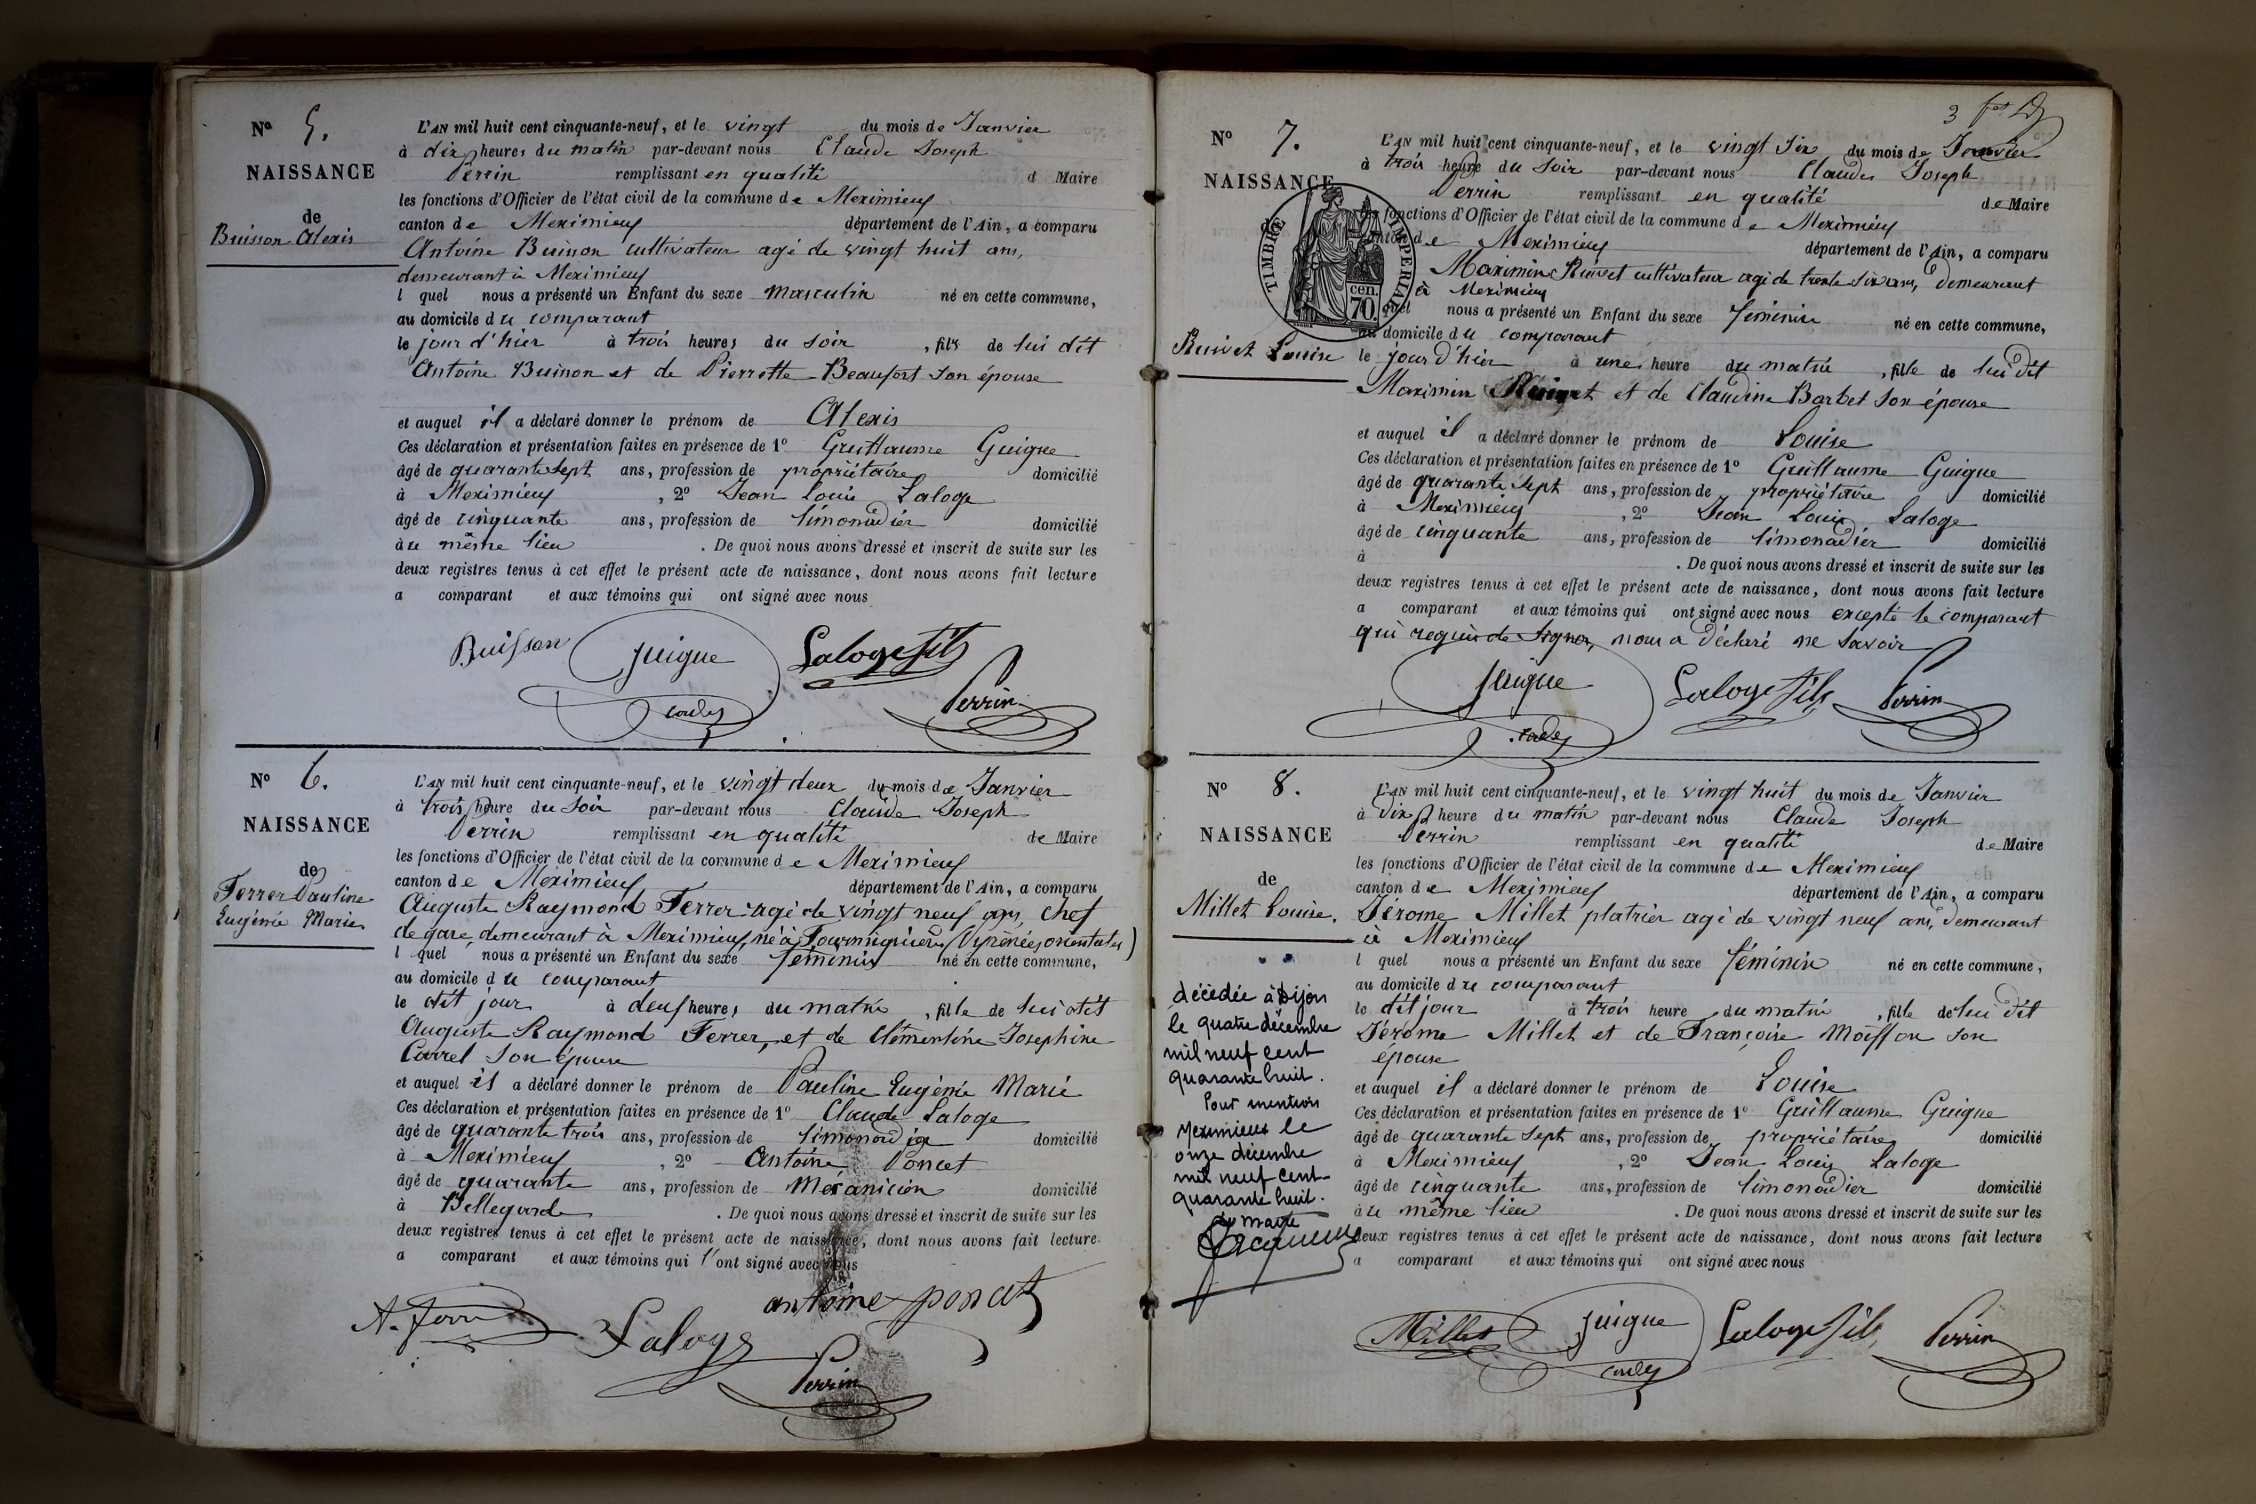 Nº 5.
NAISSANCE
de
Buisson Alexis
L'AN mil huit cent cinquante-neuf, et le vingt du mois de Janvier
à dix heures du matin par-devant nous Claude Joseph
Perrin remplissant en qualité d Maire
les fonctions d'Officier de l'état civil de la commune de Meximieux
canton de Meximieux département de l'Ain, a comparu
Antoine Buisson cultivateur agé de vingt huit ans,
demeurant à Meximieux
l quel nous a présenté un Enfant du sexe masculin né en cette commune,
au domicile du comparant
le jour d'hier à trois heures du soir , fils de lui dit
Antoine Buisson et de Pierrette Beaufort son épouse
et auquel il a déclaré donner le prénom de Alexis
Ces déclaration et présentation faites en présence de 1º Guillaume Guigue
âgé de quarante sept ans, profession de propriétaire domicilié
à Meximieux , 2º Jean Louis Laloge
âgé de cinquante ans, profession de limonadier domicilié
à u même lieu . De quoi nous avons dressé et inscrit de suite sur les
deux registres tenus à cet effet le présent acte de naissance, dont nous avons fait lecture
a comparant et aux témoins qui ont signé avec nous
Buisson Guigue Laloge fils
Perrin
Nº 6.
NAISSANCE
de
Ferrer Pauline
Eugénie Marie
L'AN mil huit cent cinquante-neuf, et le vingt deux du mois de Janvier
à trois heure du soir par-devant nous Claude Joseph
Perrin remplissant en qualité de Maire
les fonctions d'Officier de l'état civil de la commune de Meximieux
canton de Meximieux département de l'Ain, a comparu
Auguste Raymond Ferrer agé de vingt neuf ans, chef
de gare, demeurant à Meximieux, né à (Pyrénées orientales)
l quel nous a présenté un Enfant du sexe féminin né en cette commune,
au domicile du comparant
le dit jour à deux heures du matin , fille de lui dit
Auguste Raymond Ferrer, et de Clémentine Josephine
Carrel son épouse
et auquel il a déclaré donner le prénom de Pauline Eugénie Marie
Ces déclaration et présentation faites en présence de 1º Claude Laloge
âgé de quarante trois ans, profession de limonadier domicilié
à Meximieux , 2º Antoine Poncet
âgé de quarante ans, profession de Mécanicien domicilié
à Bellegarde . De quoi nous avons dressé et inscrit de suite sur les
deux registres tenus à cet effet le présent acte de naissance, dont nous avons fait lecture
a comparant et aux témoins qui l'ont signé avec nous
antoine poncet
A. Ferrer Laloge
Perrin
3
Nº 7.
NAISSANCE
Ruivet Louise
TIMBRE IMPERIAL
70 cen.
L'AN mil huit cent cinquante-neuf, et le vingt six du mois de Janvier
à trois heure du soir par-devant nous Claude Joseph
Perrin remplissant en qualité de Maire
fonctions d'Officier de l'état civil de la commune de Meximieux
canton de Meximieux département de l'Ain, a comparu
Maximin Ruivet cultivateur agé de trente six ans, demeurant
à Meximieux
quel nous a présenté un Enfant du sexe féminin né en cette commune,
au domicile du comparant
le jour d'hier à une heure du matin , fille de lui dit
Maximin Ruivet et de Claudine Barbet son épouse
et auquel il a déclaré donner le prénom de Louise
Ces déclaration et présentation faites en présence de 1º Guillaume Guigue
âgé de quarante sept ans, profession de propriétaire domicilié
à Meximieux , 2º Jean Louis Laloge
âgé de cinquante ans, profession de limonadier domicilié
à . De quoi nous avons dressé et inscrit de suite sur les
deux registres tenus à cet effet le présent acte de naissance, dont nous avons fait lecture
a comparant et aux témoins qui ont signé avec nous excepté le comparant
qui requis de signer, nous a déclaré ne savoir
Guigue Laloge fils Perrin
Nº 8.
NAISSANCE
de
Millet Louise.
décédée à Dijon
le quatre décembre
mil neuf cent
quarante huit.
Pour mention
Meximieux le
onze décembre
mil neuf cent
quarante huit.
Le maire
L'AN mil huit cent cinquante-neuf, et le vingt huit du mois de Janvier
à dix heure du matin par-devant nous Claude Joseph
Perrin remplissant en qualité de Maire
les fonctions d'Officier de l'état civil de la commune de Meximieux
canton de Meximieux département de l'Ain, a comparu
Jérome Millet platrier agé de vingt neuf ans, demeurant
à Meximieux
l quel nous a présenté un Enfant du sexe féminin né en cette commune,
au domicile du comparant
le dit jour à trois heure du matin , fille de lui dit
Jérome Millet et de Françoise Moisson son
épouse
et auquel il a déclaré donner le prénom de Louise
Ces déclaration et présentation faites en présence de 1º Guillaume Guigue
âgé de quarante sept ans, profession de propriétaire domicilié
à Meximieux , 2º Jean Louis Laloge
âgé de cinquante ans, profession de limonadier domicilié
à u même lieu . De quoi nous avons dressé et inscrit de suite sur les
deux registres tenus à cet effet le présent acte de naissance, dont nous avons fait lecture
a comparant et aux témoins qui ont signé avec nous
Millet Guigue Laloge fils Perrin